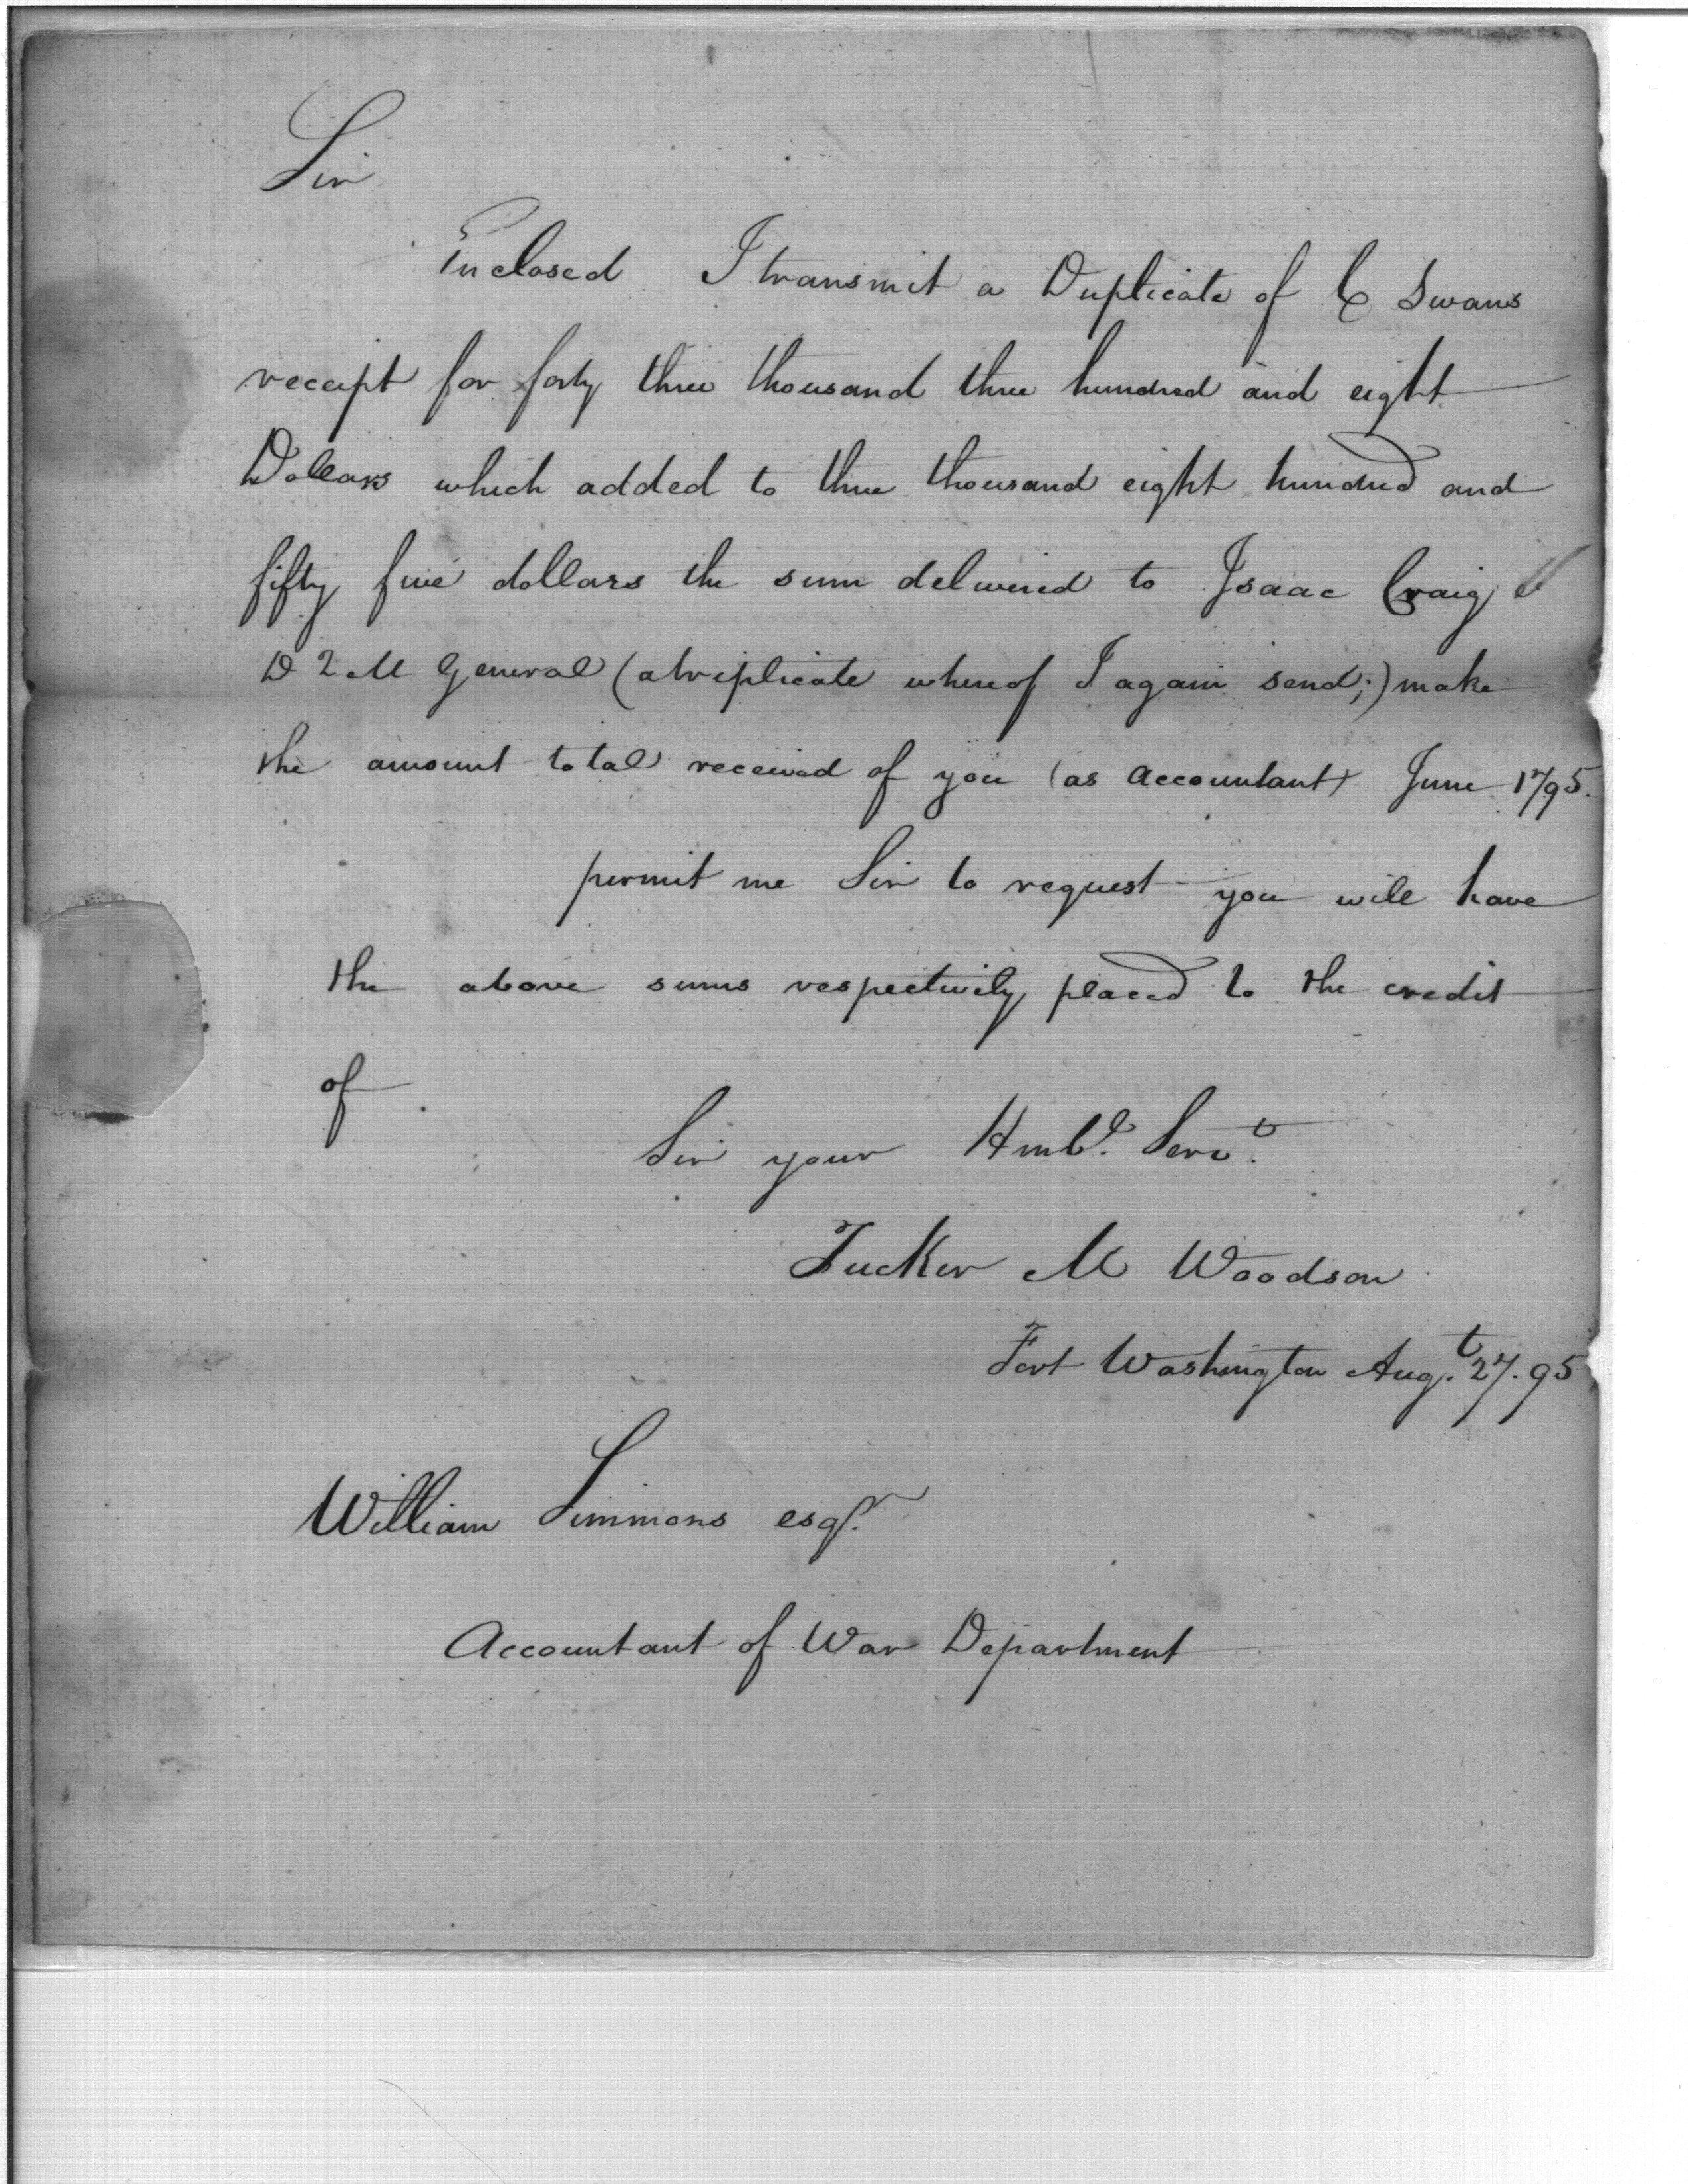 Sir
Enclosed I transmit a Duplicate of C Swans
receipt for forty three thousand three hundred and eight
Dollars which added to three thousand eight hundred and
fifty five dollars the sum delivered to Isaac Craig
D Q M General (a triplicate whereof I again send;) make
the amount total received of you (as accountant) June 1795.
permit me Sir to request you will have
the above sums respectively placed to the credit
of
Sir your Hmble. Servt.
Tucker M Woodson
Fort Washington Augt. 27. 95
William Simmons esqr.
Accountant of War Department